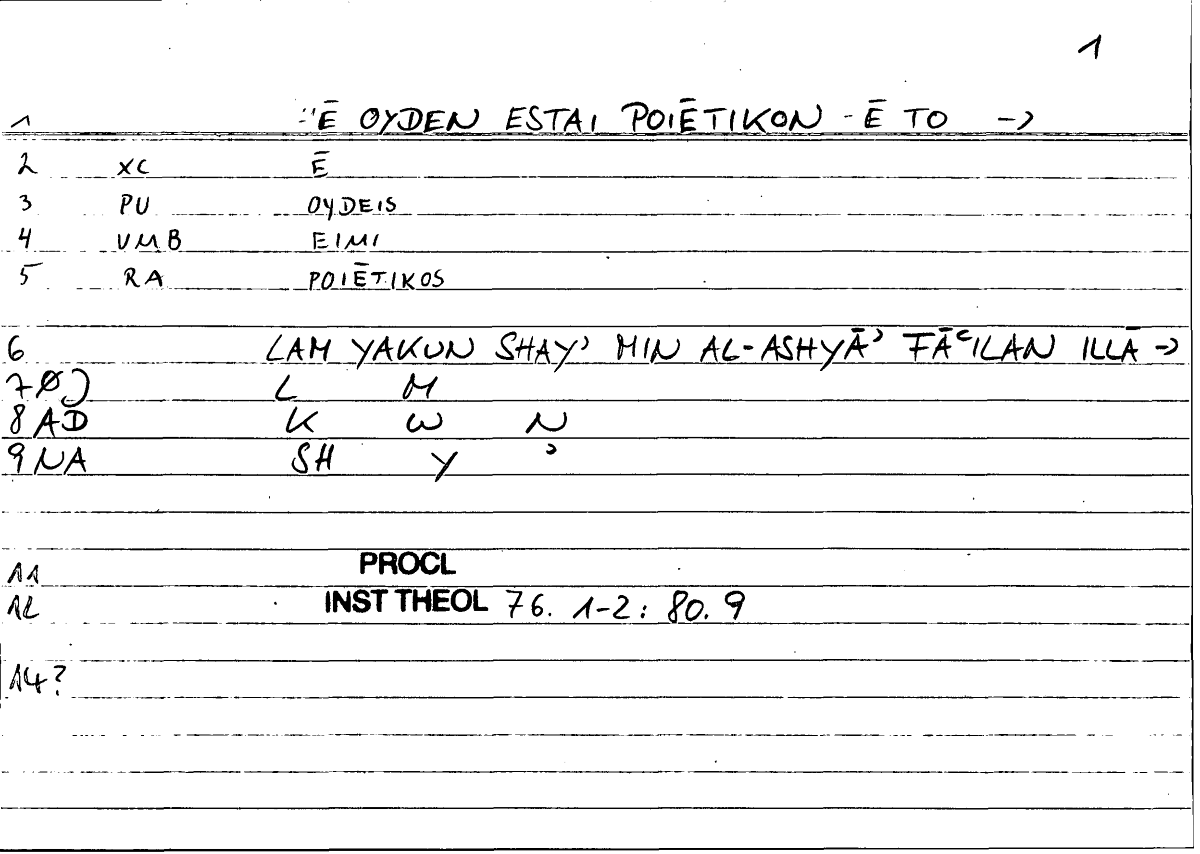 1
1 ··Ē OYDEN ESTAI POIĒTIKON - Ē TO →
2 XC Ē
3 PU OYDEIS
4 VMB EIMI
5 RA POIĒTIKOS
6 LAM YAKUN SHAYʾ MIN AL-ASHYĀʾ FĀʿILAN ILLĀ →
7 ØJ L M
8 AD K W N
9 NA SH Y ʾ
11 PROCL
12 INST THEOL 76. 1-2: 80. 9
14?